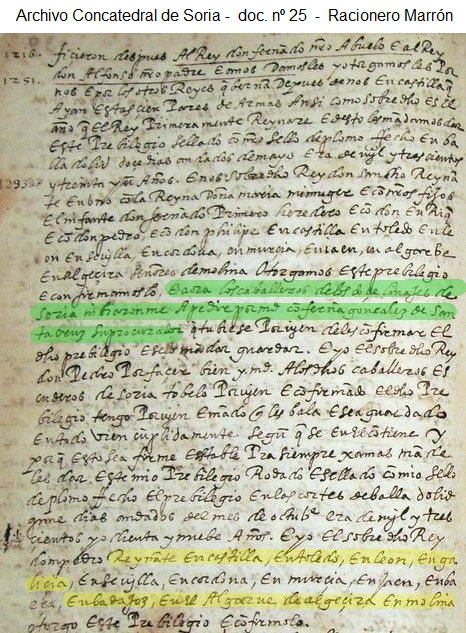 Archivo Concatedral de Soria - doc. nº 25 - Racionero Marrón
1218. ficieron despues Al Rey don fernando mro Abuelo E al Rey
1251. don Alfonso mro padre E nos Damosles y otorgamosles Por
nos E por los otros Reyes q berna Depues de nos en castilla q
Ayan Estas cien Pares de Armas Ansi como sobredho Es el
año q El Rey Primeramente Reynare E desto les mandamos dar
Este Prebilegio sellado con mro sello de plomo fecho En ba
lladolid doce dias andados de mayo Era de mjl y trescientos
y treinta y un Años. E nos sobredho Rey don sancho Reyna
1293 te En Uno con la Reyna Doña maria mi muger E con mros fijos
El infante don fernando Primero heredero E con don EnRiq
E con don pedro, E con don phelipe En castilla En toledo En le
on En Sevilla, En cordova, en murcia, En iaen, en al gorbe
En algecira Señores de molina Otorgamos Este prebilegio
E confirmamoslo, E aora los caballeros de los doce linajes de
Soria mbiaronme A pedir por md co ferna gonzalez de San
ta cruz Su procurador q tubiese Por vien de ley confirmar El
dho prebilegio E se lo mandar guardar. E yo El sobredho Rey
don Pedro Por facer bien y md. A los dhos caballeros Es
cuderos de soria tobelo Por vien E confirmado El dho Pre
bilegio tengo Por vien E mando q les bala E sea guardado
En todo vien cumplidamente Segun q se En el contiene Y
porq Esto sea firme Estable Pra siempre xamas man de
les dar Este mio Prebilegio Rodado E sellado co mio sello
de plomo fecho El prebilegio En las cortes de balladolid
qinze dias andados del mes de octubre era de mjl y tres
cientos yochenta y nuebe Años. E yo El sobredho Rey
don pedro Reynate En castilla, En toledo, En leon, En ga
licia, En Sevilla, En cordova, En murcia, En Jaen, En ba
eza, En badajoz, En el Algarve de algecira En molina
otorgo Este Prebilegio E confirmolo.